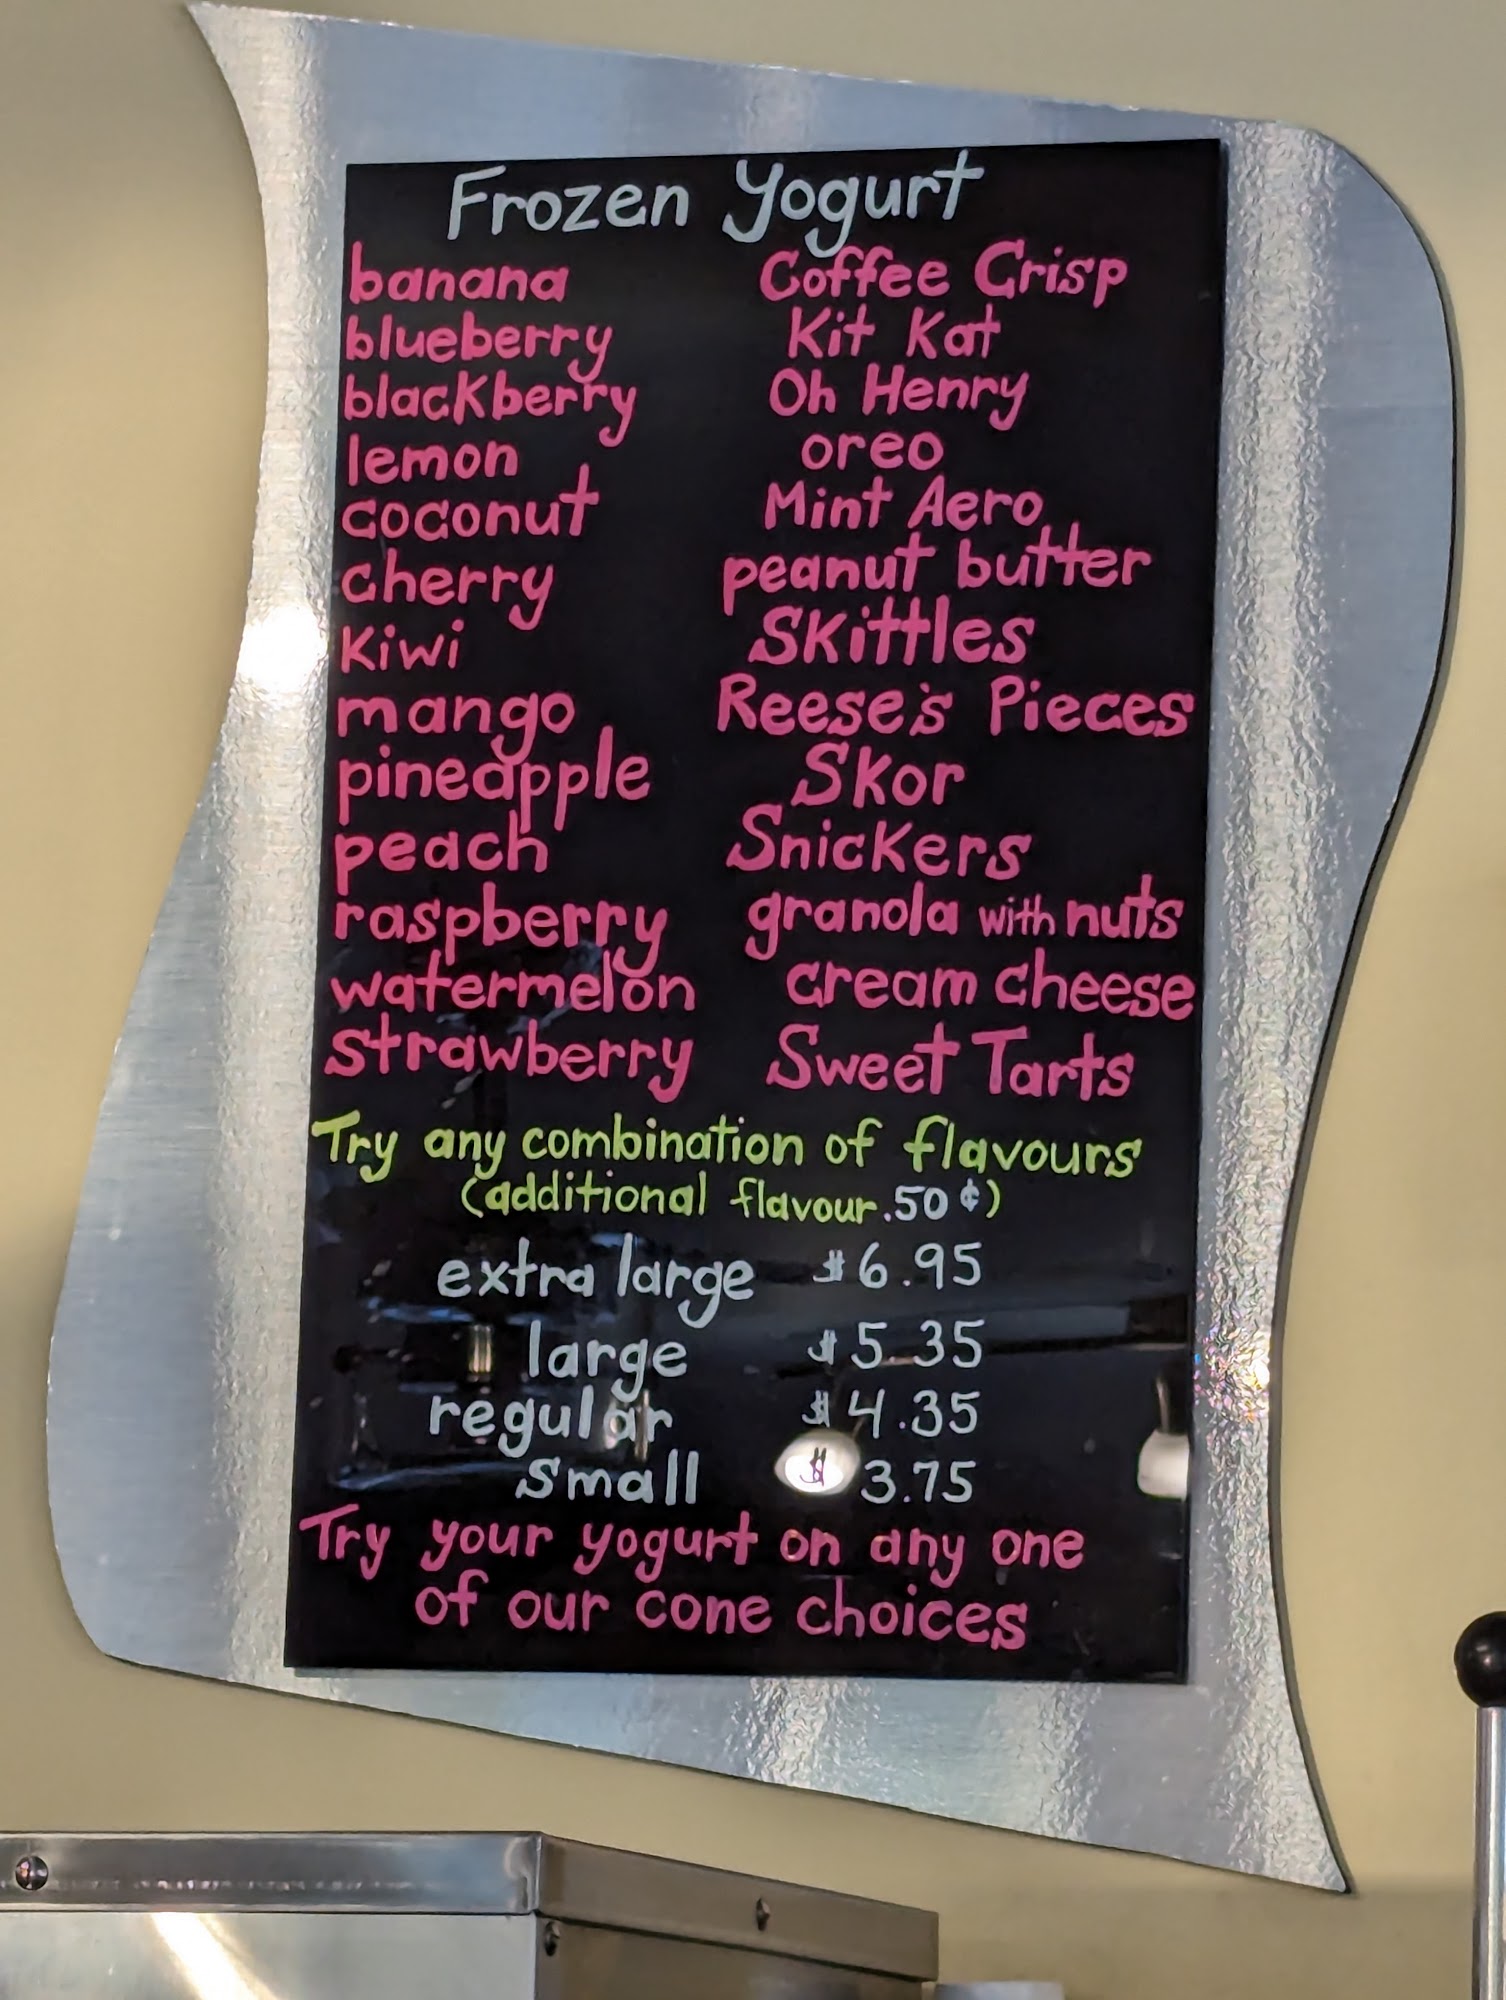 Frozen Yogurt
banana
blueberry
blackberry
lemon
coconut
cherry
kiwi
mango
pineapple
peach
raspberry
watermelon
strawberry
Coffee Crisp
Kit Kat
Oh Henry
oreo
Mint Aero
peanut butter
Skittles
Reese's Pieces
Skor
Snickers
granola with nuts
cream cheese
Sweet Tarts
Try any combination of flavours
(additional flavour .50¢)
extra large $6.95
large $5.35
regular $4.35
small $3.75
Try your yogurt on any one
of our cone choices